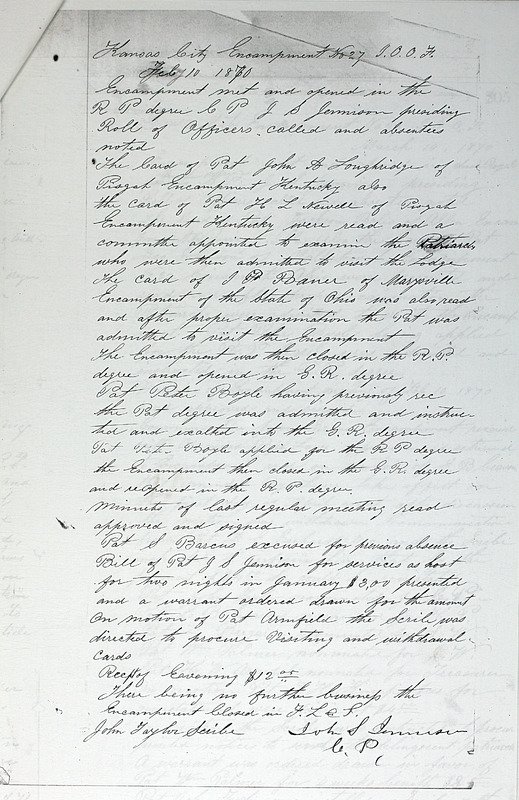 Kansas City Encampment No 27 I.O.O.F.
Feby 10 1870
Encampment met and opened in the
R P degree C P J S Jennison presiding
Roll of Officers called and absentees
noted
The Card of Pat John A Loughridge of
Pisgah Encampment Kentucky also
the card of Pat H L Newell of Pisgah
Encampment Kentucky were read and a
committe appointed to examine the Patriarchs
who were then admitted to visit the lodge
The card of J P Bauer of Marysville
Encampment of the State of Ohio was also read
and after proper examination the Pat was
admitted to visit the Encampment
The Encampment was then closed in the R.P.
degree and opened in G.R. degree
Pat Peter Boyle having previously rec
the Pat degree was admitted and instruc-
ted and exalted into the G.R. degree
Pat Boyle applied for the R P degree
the Encampment then closed in the G.R. degree
and reopened in the R.P. degree
Minnets of last regular meeting read
approved and signed
Pat S Barcus excused for previous absence
Bill of Pat J S Jennison for services as host
for two nights in January $3,00 presented
and a warrant ordered drawn for the amount
On motion of Pat Armfield the Scribe was
directed to procure Visiting and withdrawal
cards
Recpt of Evening $12 00
There being no further business the
Encampment Closed in F. L & T.
John Taylor Scribe John S Jennison
C. P.